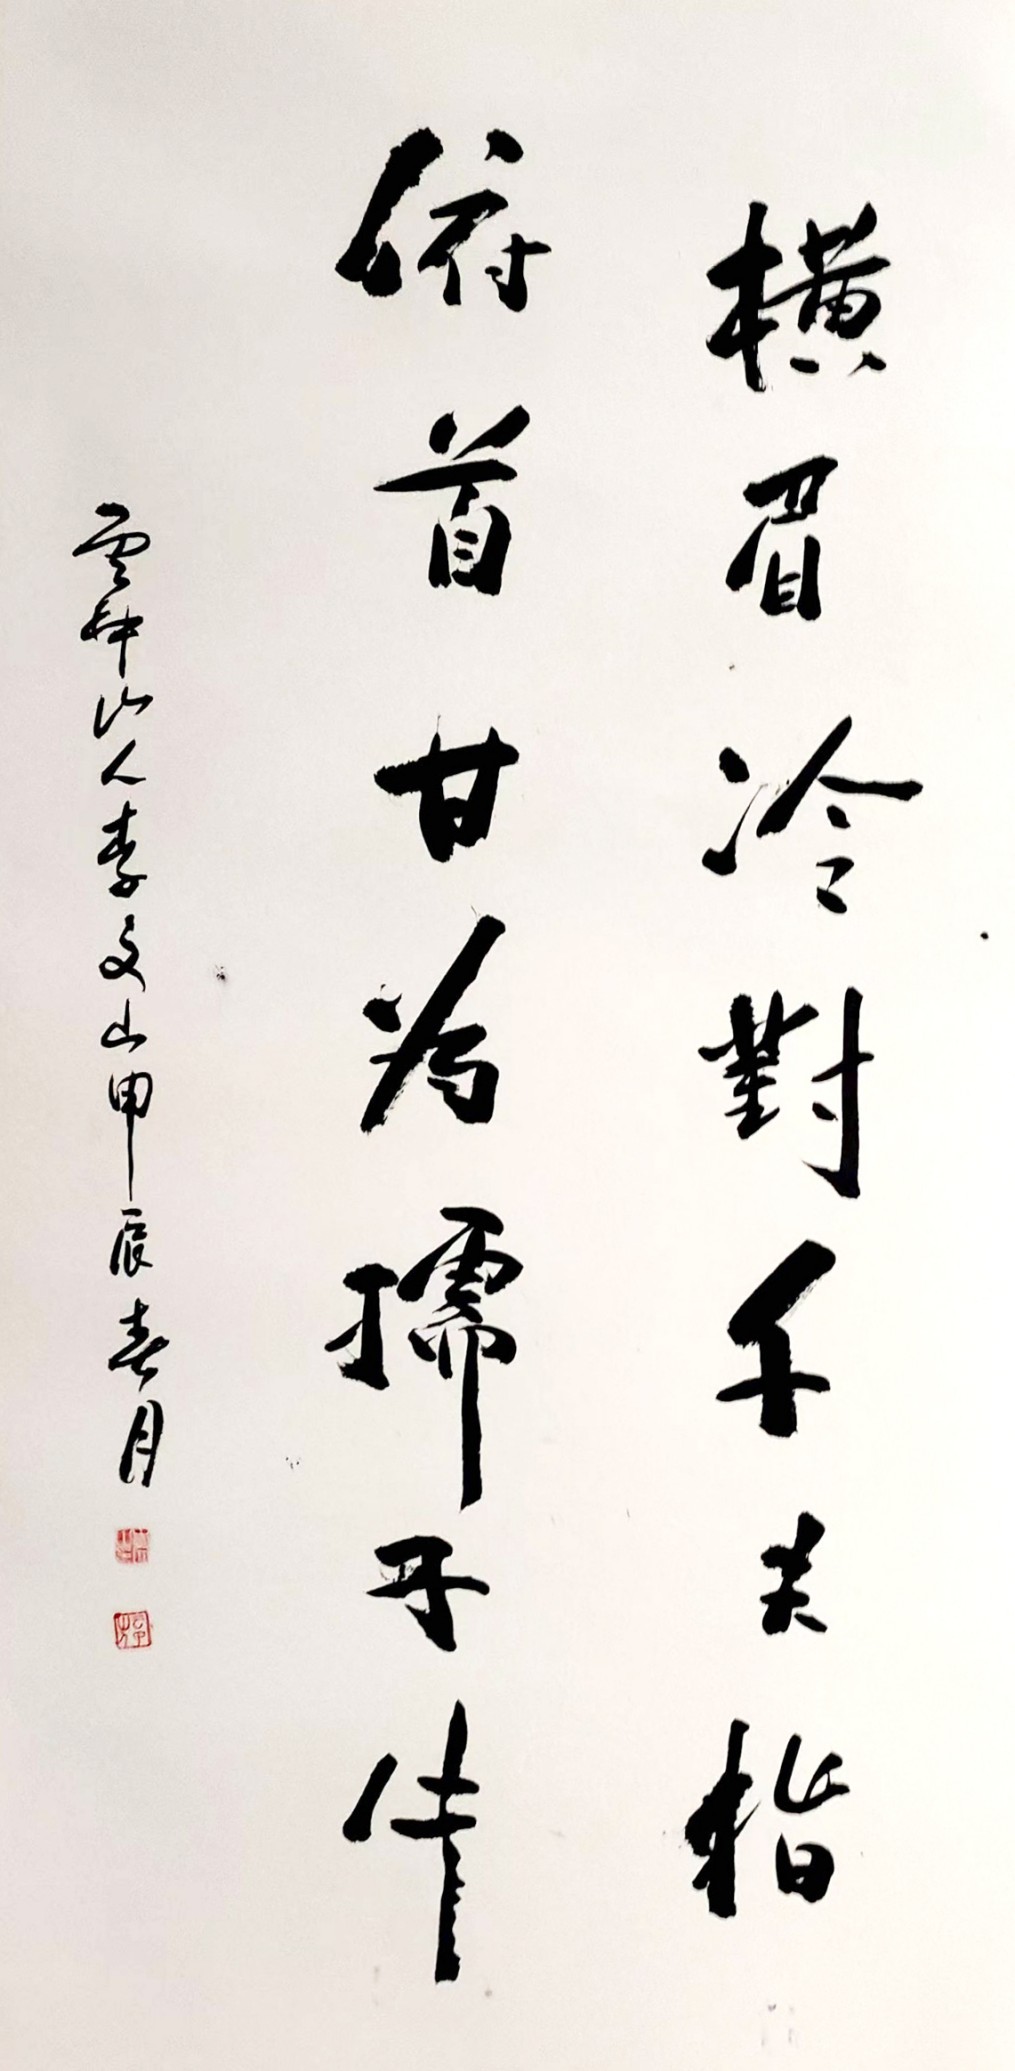 橫眉冷對千夫指
俯首甘为孺子牛
雲山人李文山甲辰春月